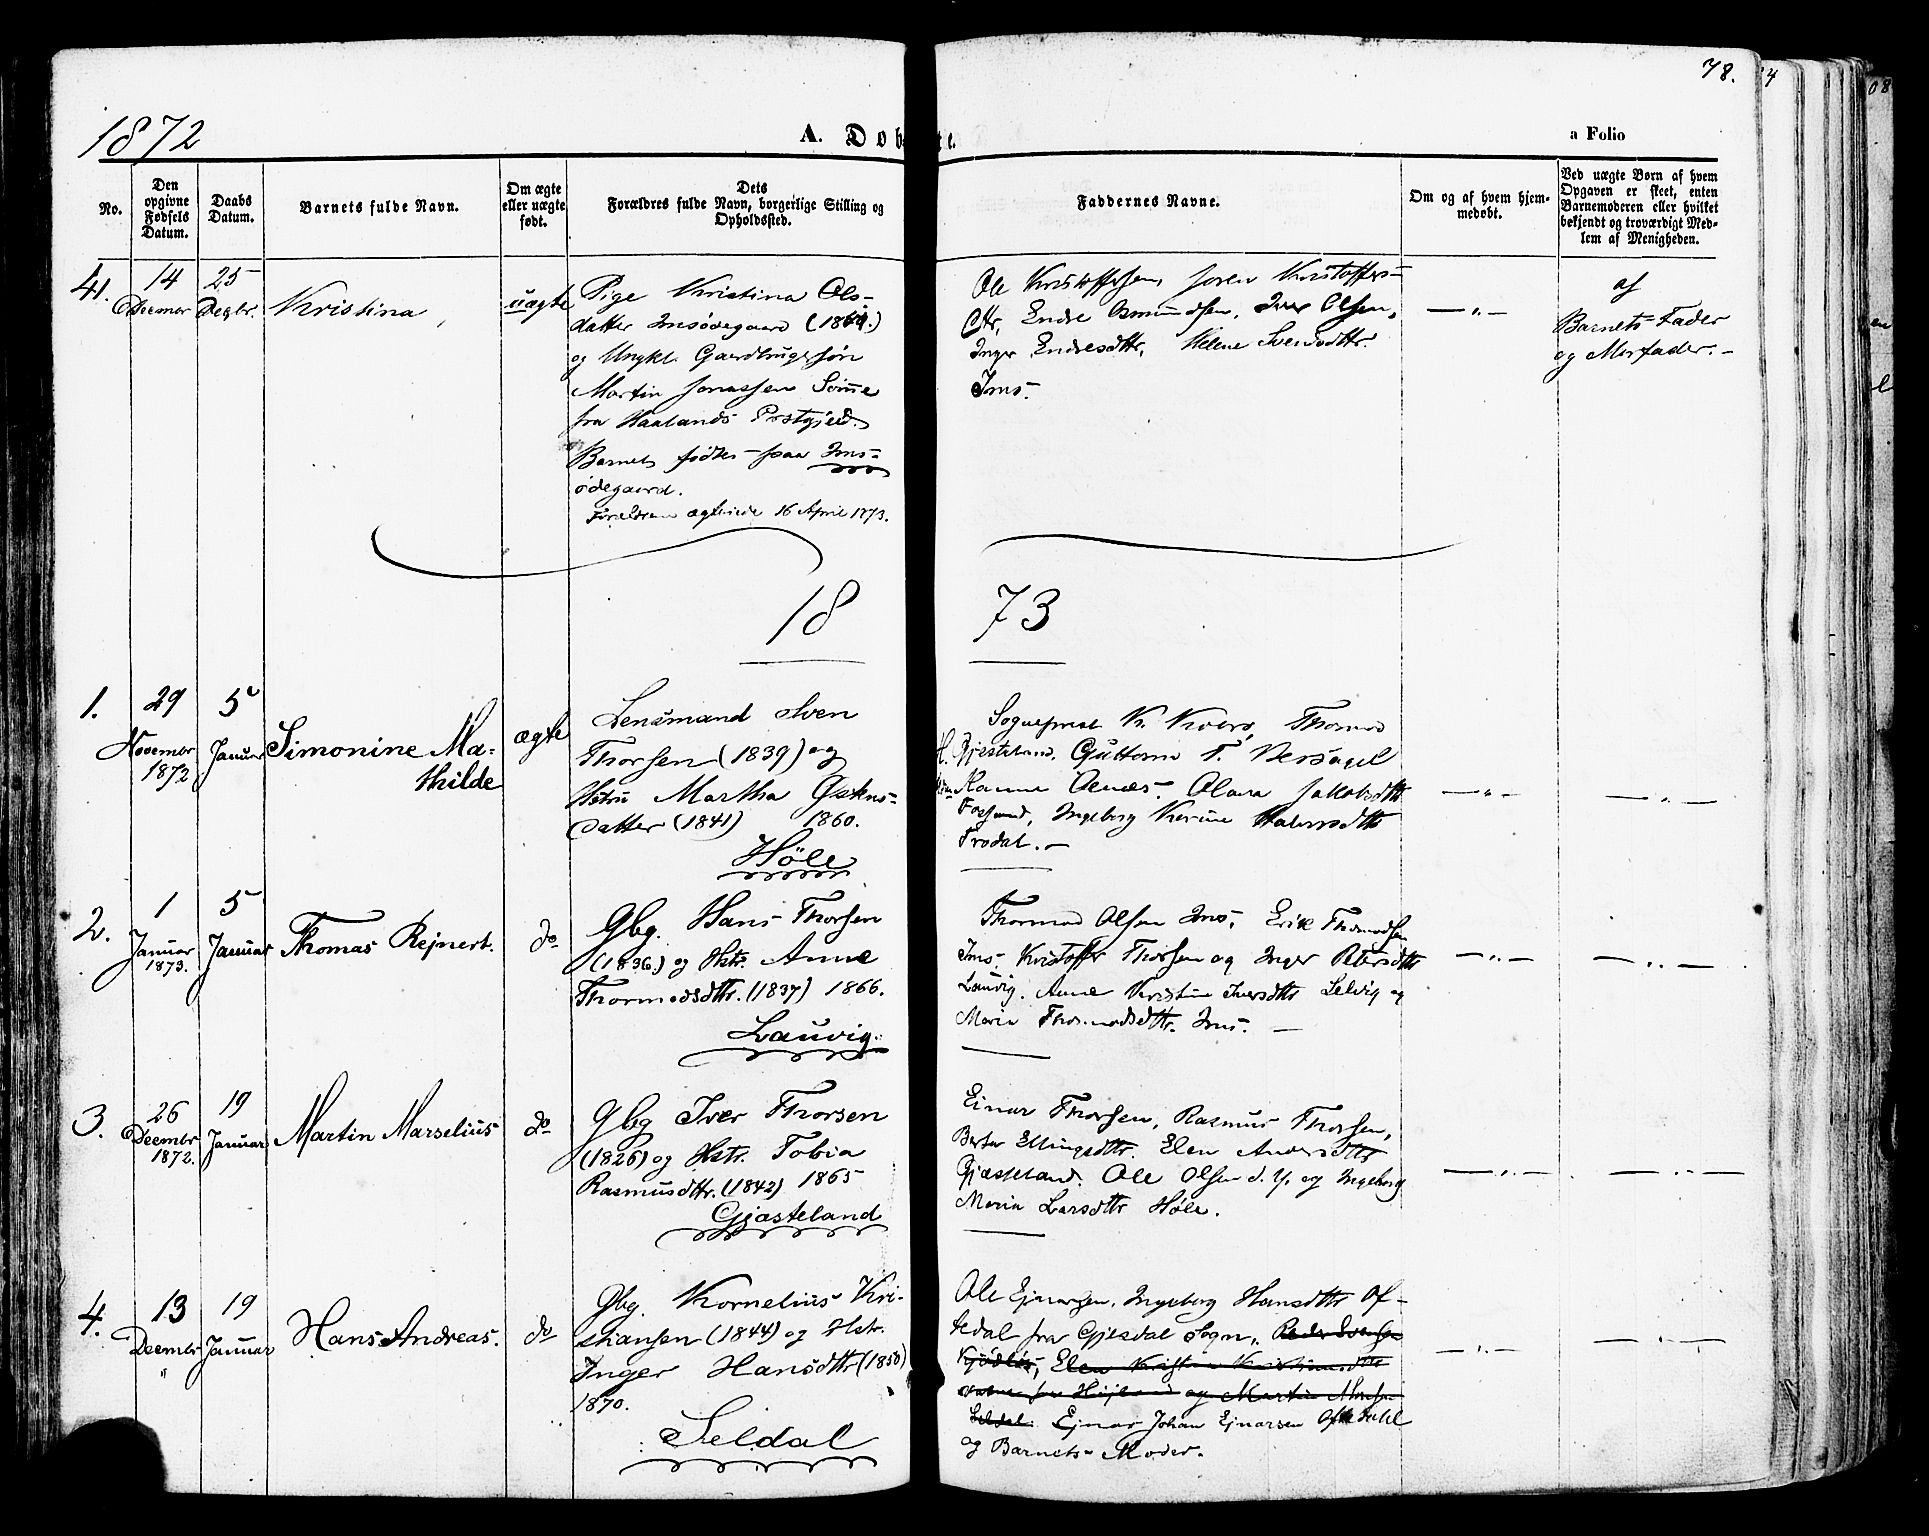 78.
1872
A. Døb
te.
a Folio
No.
Den opgivne Fødsels Datum.
Daabs Datum.
Barnets fulde Navn.
Om ægte eller uægte født.
Dets Forældres fulde Navn, borgerlige Stilling og Opholdssted.
Faddernes Navne.
Om og af hvem hjemmedøbt.
Ved uægte Børn af hvem Opgaven er skeet, enten Barnemoderen eller hvilket bekjendt og troværdigt Medlem af Menigheden.
41.
14 Decmbr
25 Decbr.
Kristina
uægte
Pige Kristina Ols-
datter Imsødegaard
og Ungkl. Gaardbrugersøn
Martin Jonassen Sømme
fra Haalands Prstgjeld.
Barnet fødtes paa Ims-
ødegaard.
Forældrene ægteviede 16 April 1873.
Ole Kristoffersen, Soren Kristoffers-
dtr, Endre Osmundsen, Iver Olsen,
Inger Endresdttr, Helene Svendsdttr
Ims.
— " —
af
Barnets Fader
og Morfader. -
18 73
1.
29 November 1872
5 Januar
Simonine Ma-
thilde
ægte
Lensmand Sven
Thorsen (1839) og
Hstru Martha Østens-
datter (1841) 1860.
Høle
Sogneprest K. Thormod
Gjesteland, Guttorm T. Versagel
Hanne Aenæs, Olava Jakobsdttr
Fossand, Ingeborg Karine
Frodal. -
— " —
— " —
2.
1 Januar 1873.
5 Januar
Thomas Rejnert.
do
Gbg. Hans Thorsen
(1836.) og Hstr. Anne
Thormodsdttr. (1837) 1866.
Lauvig.
Thormod Olsen Ims, Erik Thormodsen
Ims, Kristoffer Thorsen og Inger Petersdttr
Lauvig. Anne Kristine Iversdttr Selvig og
Maria Thormodsdttr. Ims. —
— " —
— " —
3.
26 Decembr 1872.
19 Januar
Martin Marselius
do
Gbg Iver Thorsen
(1826) og Hstr. Tobia
Rasmusdttr. (1842) 1865
Gjæsteland
Einar Thorsen, Rasmus Thorsen,
Berta Ellingsdttr. Elen Andersdttr
Gjæsteland. Ole Olsen d. y. og Ingeborg
Maria Larsdttr Høle.
— " —
— " —
4.
13 Decembr "
19 Januar
Hans Andreas.
do
Gbg. Kornelius Kri-
stiansen (1844) og Hstr.
Inger Hansdttr (1850)
1870.
Seldal
Ole Ejnarsen, Ingeborg Hansdttr Of-
tedal fra Gjesdal Sogn, Peder Svensen
Kjødløs, Elen Kristine
og Martin
Seldal. Ejnar Johan Ejnarsen Oftedahl
og Barnets Moder.
— " —
— " —